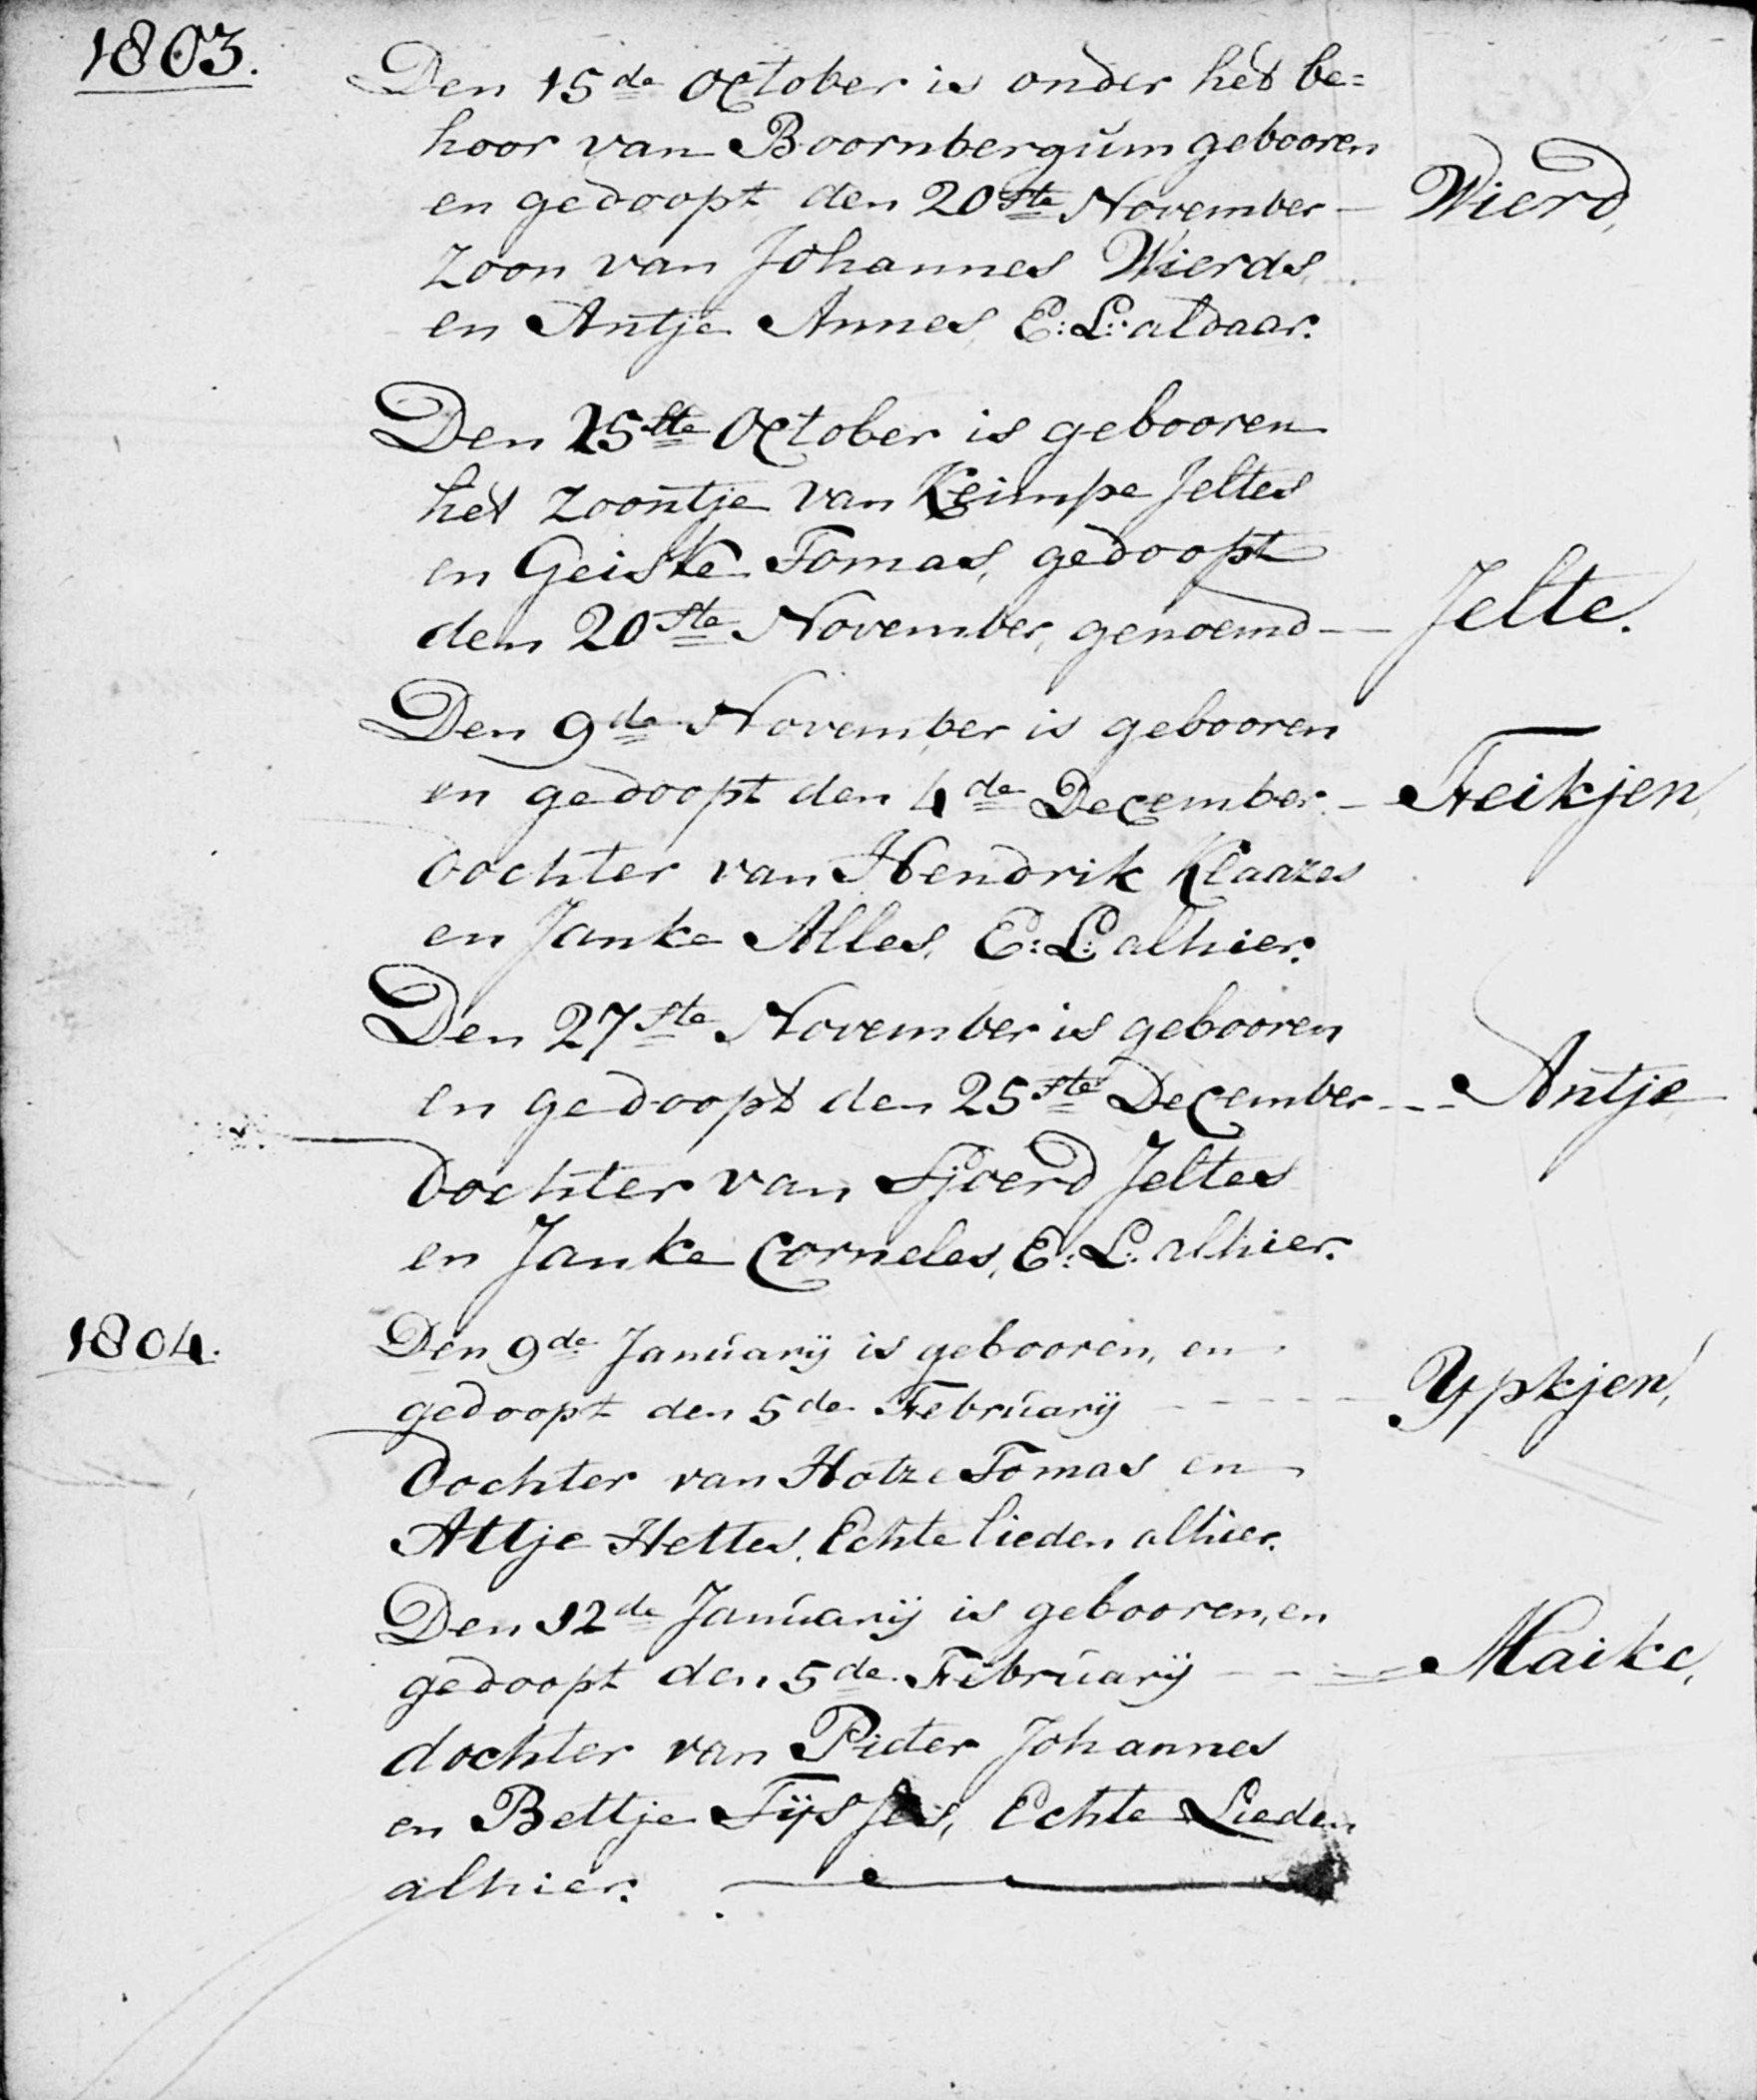 1803.
Den 15de October is onder het be=
hoor van Boornbergum gebooren
en gedoopt den 20ste November — Wierd,
Zoon van Johannes Wierds,
en Antje Annes, E: L: aldaar.
Den 25ste October is gebooren
het Zoontje van Keimpe Jeltes
en Geiske Tomas, gedoopt
den 20ste November, genoemd — Jelte.
Den 9de November is gebooren
en gedoopt den 4de December — Feikjen,
Dochter van Hendrik Klaazes
en Janke Alles, E: L: alhier.
Den 27ste November is gebooren
en gedoopt den 25ste December --- Antje
Dochter van Sjoerd Jeltes
en Janke Corneles, E: L: alhier.
1804.
Den 9de Januarij is gebooren, en
gedoopt den 5de Februarij ----- Ypkjen,
Dochter van Hotze Tomas en
Attje Hettes, Echte lieden alhier.
Den 12de Januarij is gebooren, en
gedoopt den 5de Februarij --- Maike,
dochter van Pieter Johannes
en Bettje Echte Lieden
alhier.